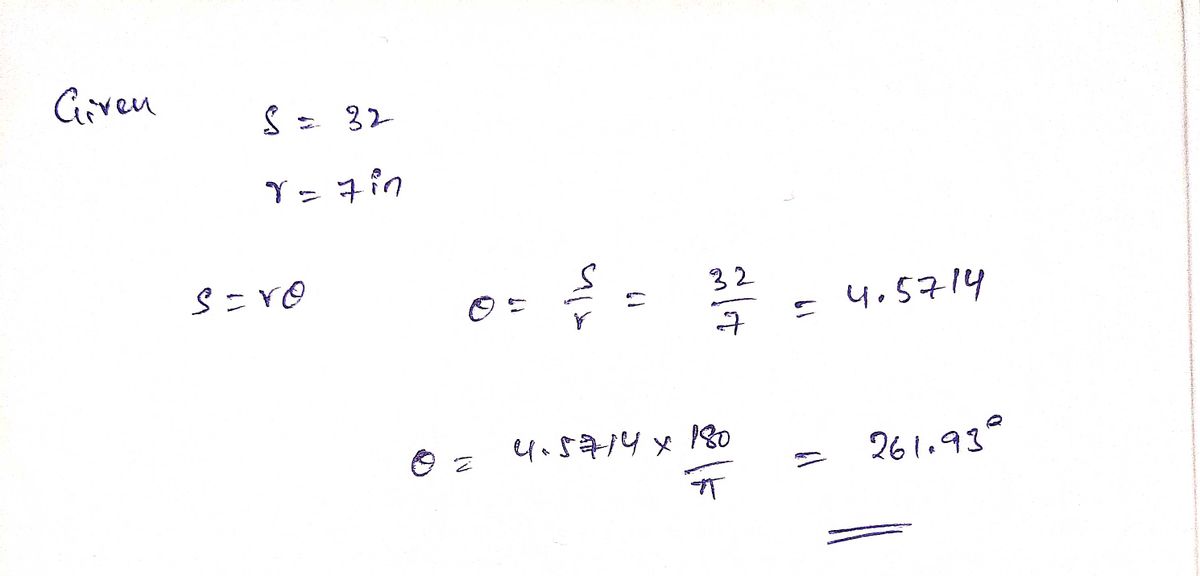 Given
S = 32
r = 7in
S = rθ θ = S/r = 32/7 = 4.5714
θ = 4.5714 x 180/π = 261.93°